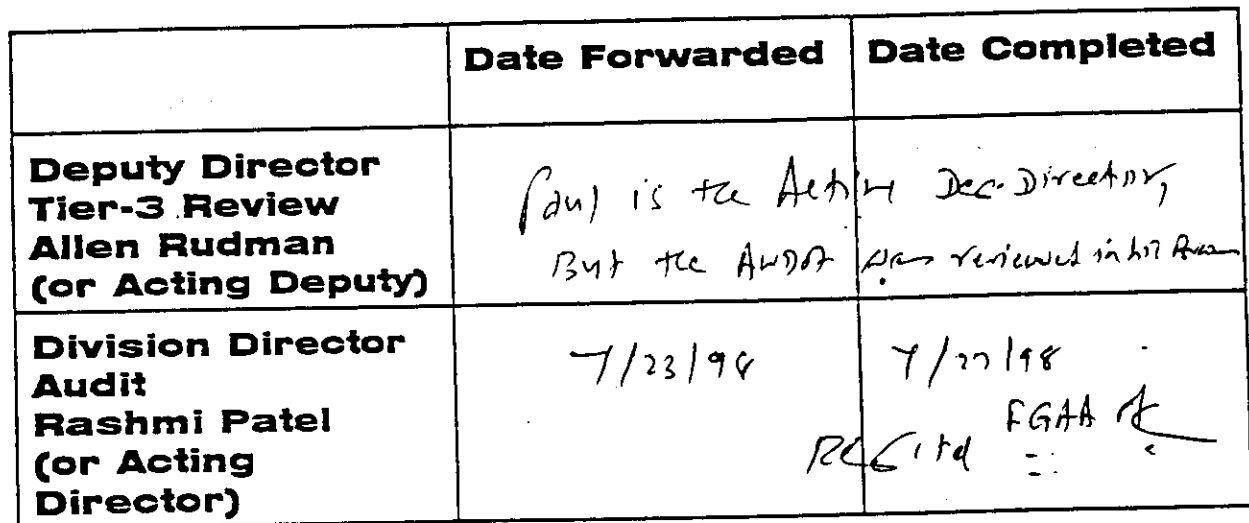 Date Forwarded Date Completed
Deputy Director
Tier-3 Review
Allen Rudman
(or Acting Deputy)
Paul is the Acting Dep. Director,
But the Audit was reviewed in his
Division Director
Audit
Rashmi Patel
(or Acting
Director)
7/23/98 7/27/98